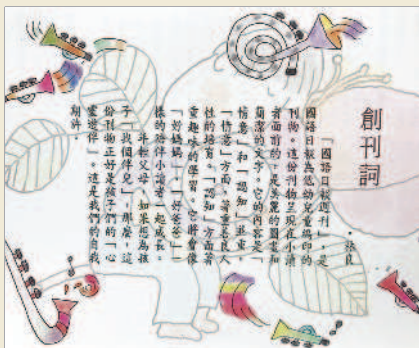 創刊詞
・張良
「國語日報週刊」，是
國語日報為幼幼兒童編印的
刊物。這份刊物呈現在小讀
者面前的，是美麗的圖畫和
簡潔的文字。它的內容是「
情意」和「認知」並重。
「情意」方面，著重在良人
性的培育。「認知」方面著
重趣味的學習。它將會像
「好媽媽」、「好爸爸」一
樣的陪伴小讀者一起成長。
年輕父母，如果想為孩
子「找個伴兒」，那麼，這
份刊物正好是孩子們的「心
靈遊伴」。這是我們的自我
期許。